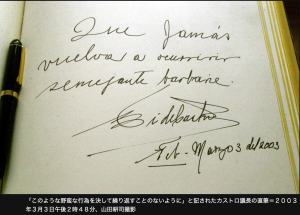 Que Jamás
vuelva a ocurrir
semejante barbarie.
Fidel Castro
Feb. Marzo 3 del 2003
「このような野蛮な行為を決して繰り返すことのないように」と記されたカストロ議長の直筆＝2003
年3月3日午後2時48分、山田耕司撮影